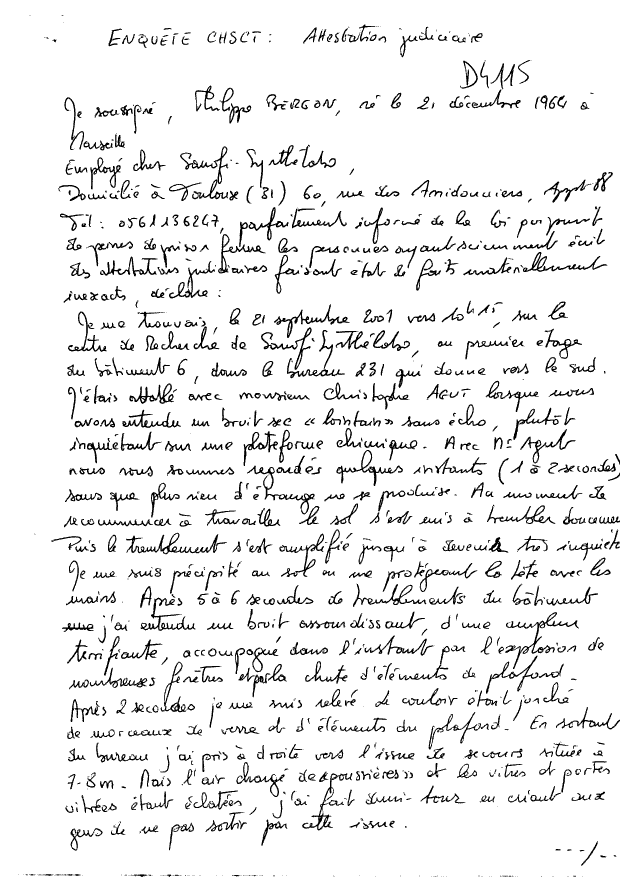 ENQUÊTE CHSCT : Attestation judiciaire
D4115
Je soussigné, Philippe BERGON, né le 21 décembre 1964 à
Marseille
Employé chez Sanofi-Synthélabo,
Domicilié à Toulouse (31) 60, rue des Amidonniers, Appt 08
Tél : 0561136247, parfaitement informé de la loi qui punit
de peines de prison ferme les personnes ayant sciemment écrit
des attestations judiciaires faisant état de faits matériellement
inexacts, déclare :
Je me trouvais, le 21 septembre 2001 vers 10h15, sur le
centre de Recherche de Sanofi-Synthélabo, au premier étage
du bâtiment 6, dans le bureau 231 qui donne vers le sud.
J'étais attablé avec monsieur Christophe AGUT lorsque nous
avons entendu un bruit sec « lointain » sans écho, plutôt
inquiétant sur une plateforme chimique. Avec Mr Agut
nous nous sommes regardés quelques instants (1 à 2 secondes)
sans que plus rien d'étrange ne se produise. Au moment de
recommencer à travailler le sol s'est mis à trembler doucemen
Puis le tremblement s'est amplifié jusqu'à devenir très inquiét
Je me suis précipité au sol en me protégeant la tête avec les
mains. Après 5 à 6 secondes de tremblements du bâtiment
j'ai entendu un bruit assourdissant, d'une ampleur
terrifiante, accompagné dans l'instant par l'explosion de
nombreuses fenêtres et par la chute d'éléments de plafond.
Après 2 secondes je me suis relevé. Le couloir était jonché
de morceaux de verre et d'éléments du plafond. En sortant
du bureau j'ai pris à droite vers l'issue de secours située à
7-8m. Mais l'air chargé de « poussières » et les vitres et portes
vitrées étant éclatées, j'ai fait demi-tour en criant aux
gens de ne pas sortir par cette issue.
---/--